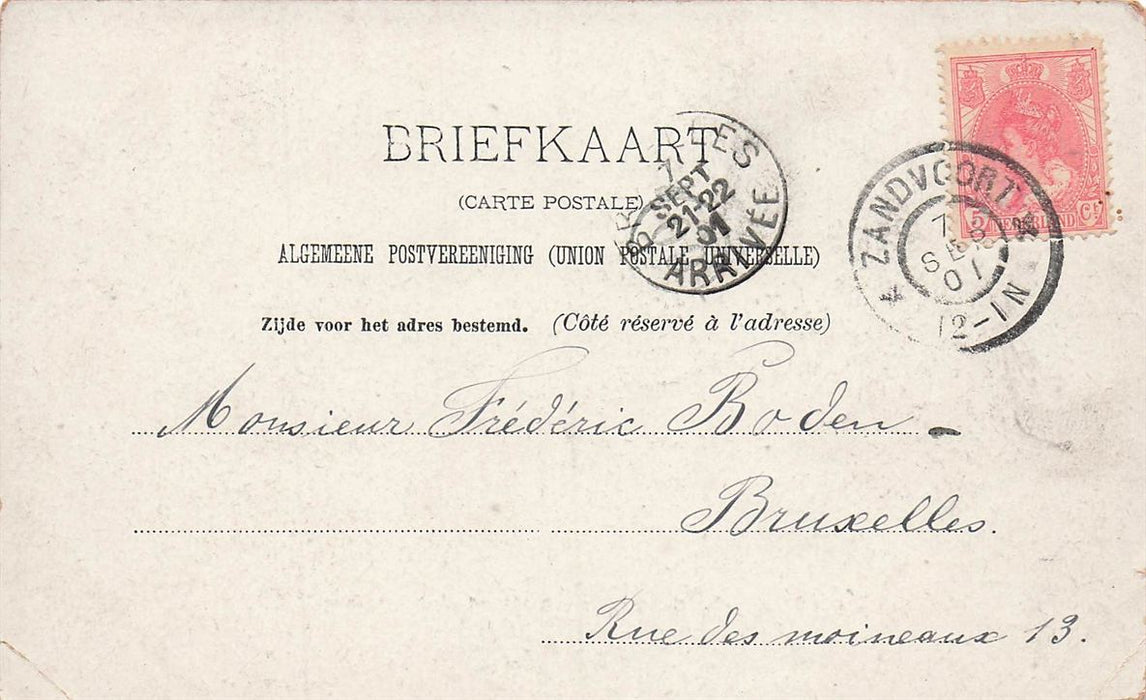 BRIEFKAART
(CARTE POSTALE)
ALGEMEENE POSTVEREENIGING (UNION POSTALE UNIVERSELLE)
Zijde voor het adres bestemd. (Côté réservé à l'adresse)
7
SEPT
21-22
01
ARRIVÉE
ZANDVOORT
7 SEP
01
12-1N
5 NEDERLAND Ct
Monsieur Frédéric Boden
Bruxelles.
Rue des moineaux 13.